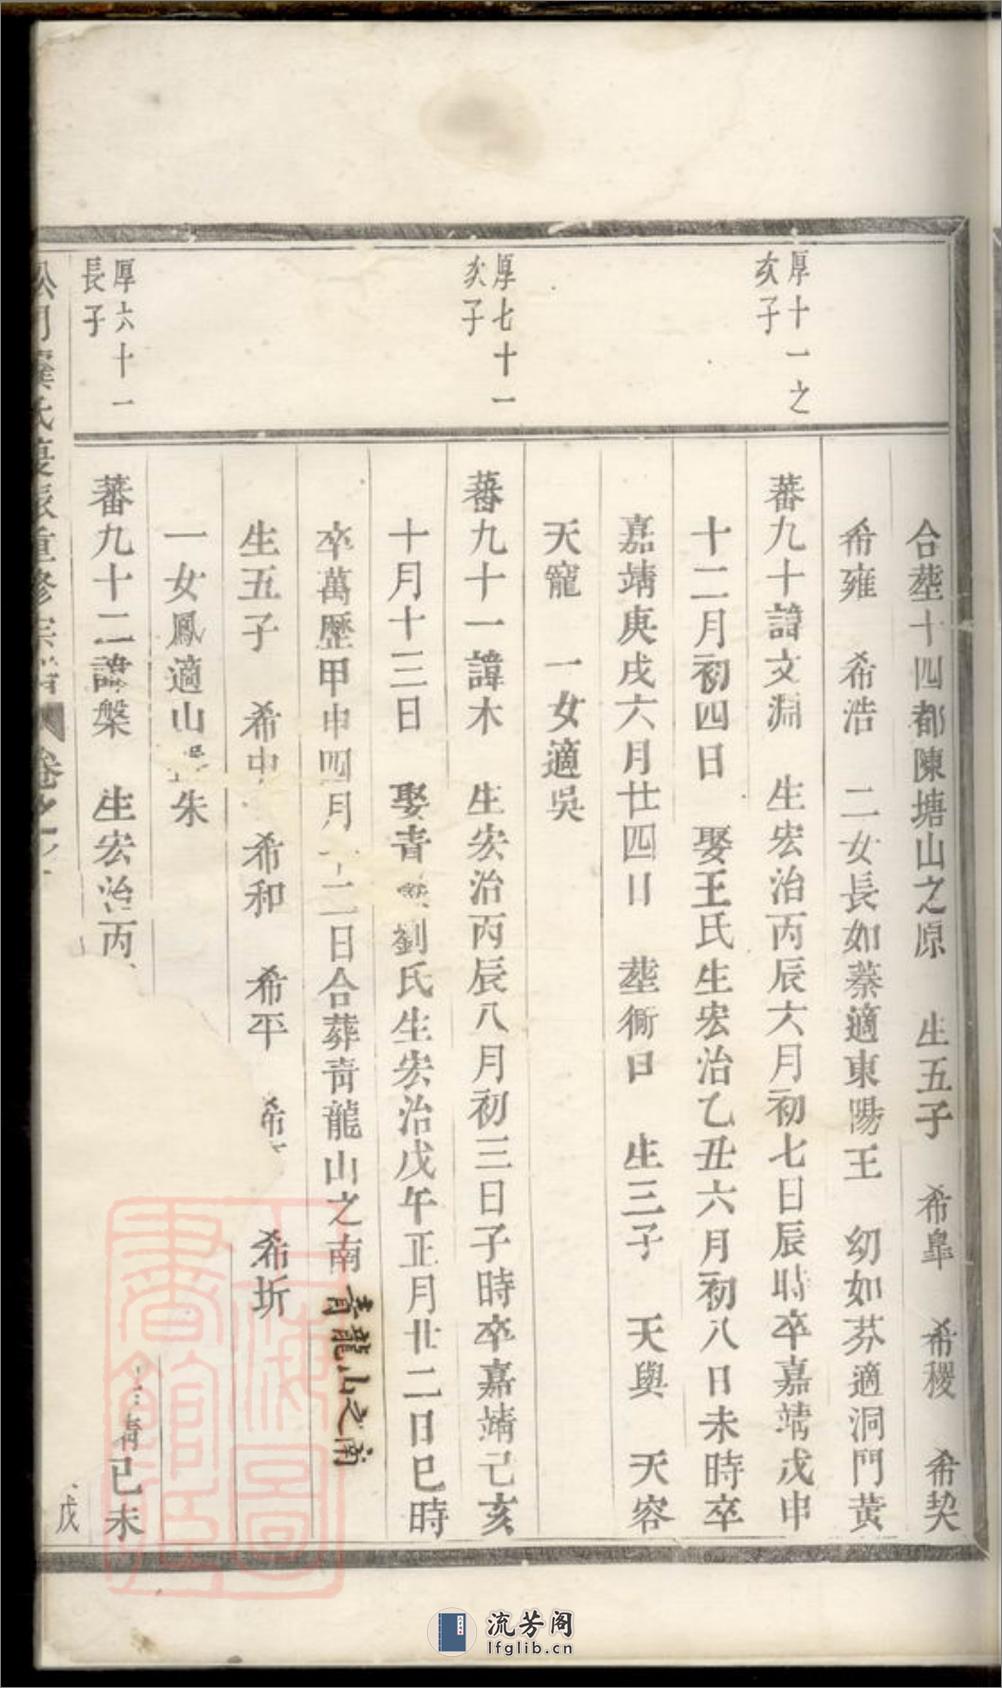 厚十一之
次子
厚七十一
次子
厚六十一
長子
合塟十四都陳塘山之原　生五子　希臯　希稷　希契
希雍　希浩　二女長如蓁適東陽王　幼如芬適洞門黃
蕃九十諱文淵　生宏治丙辰六月初七日辰時卒嘉靖戊申
十二月初四日　娶王氏生宏治乙丑六月初八日未時卒
嘉靖庚戌六月廿四日　塟衕口　生三子　天與　天容
天寵　一女適吳
蕃九十一諱木　生宏治丙辰八月初三日子時卒嘉靖己亥
十月十三日　娶青劉氏生宏治戊午正月廿二日巳時
卒萬歷甲申四月二日合葬青龍山之南
青龍山之南
生五子　希中　希和　希平　希　希圻
一女鳳適山朱
蕃九十二諱槃　生宏治丙　靖己未
氏重修宗譜　卷之
戊
上海圖書館藏
流芳阁
lfglib.cn